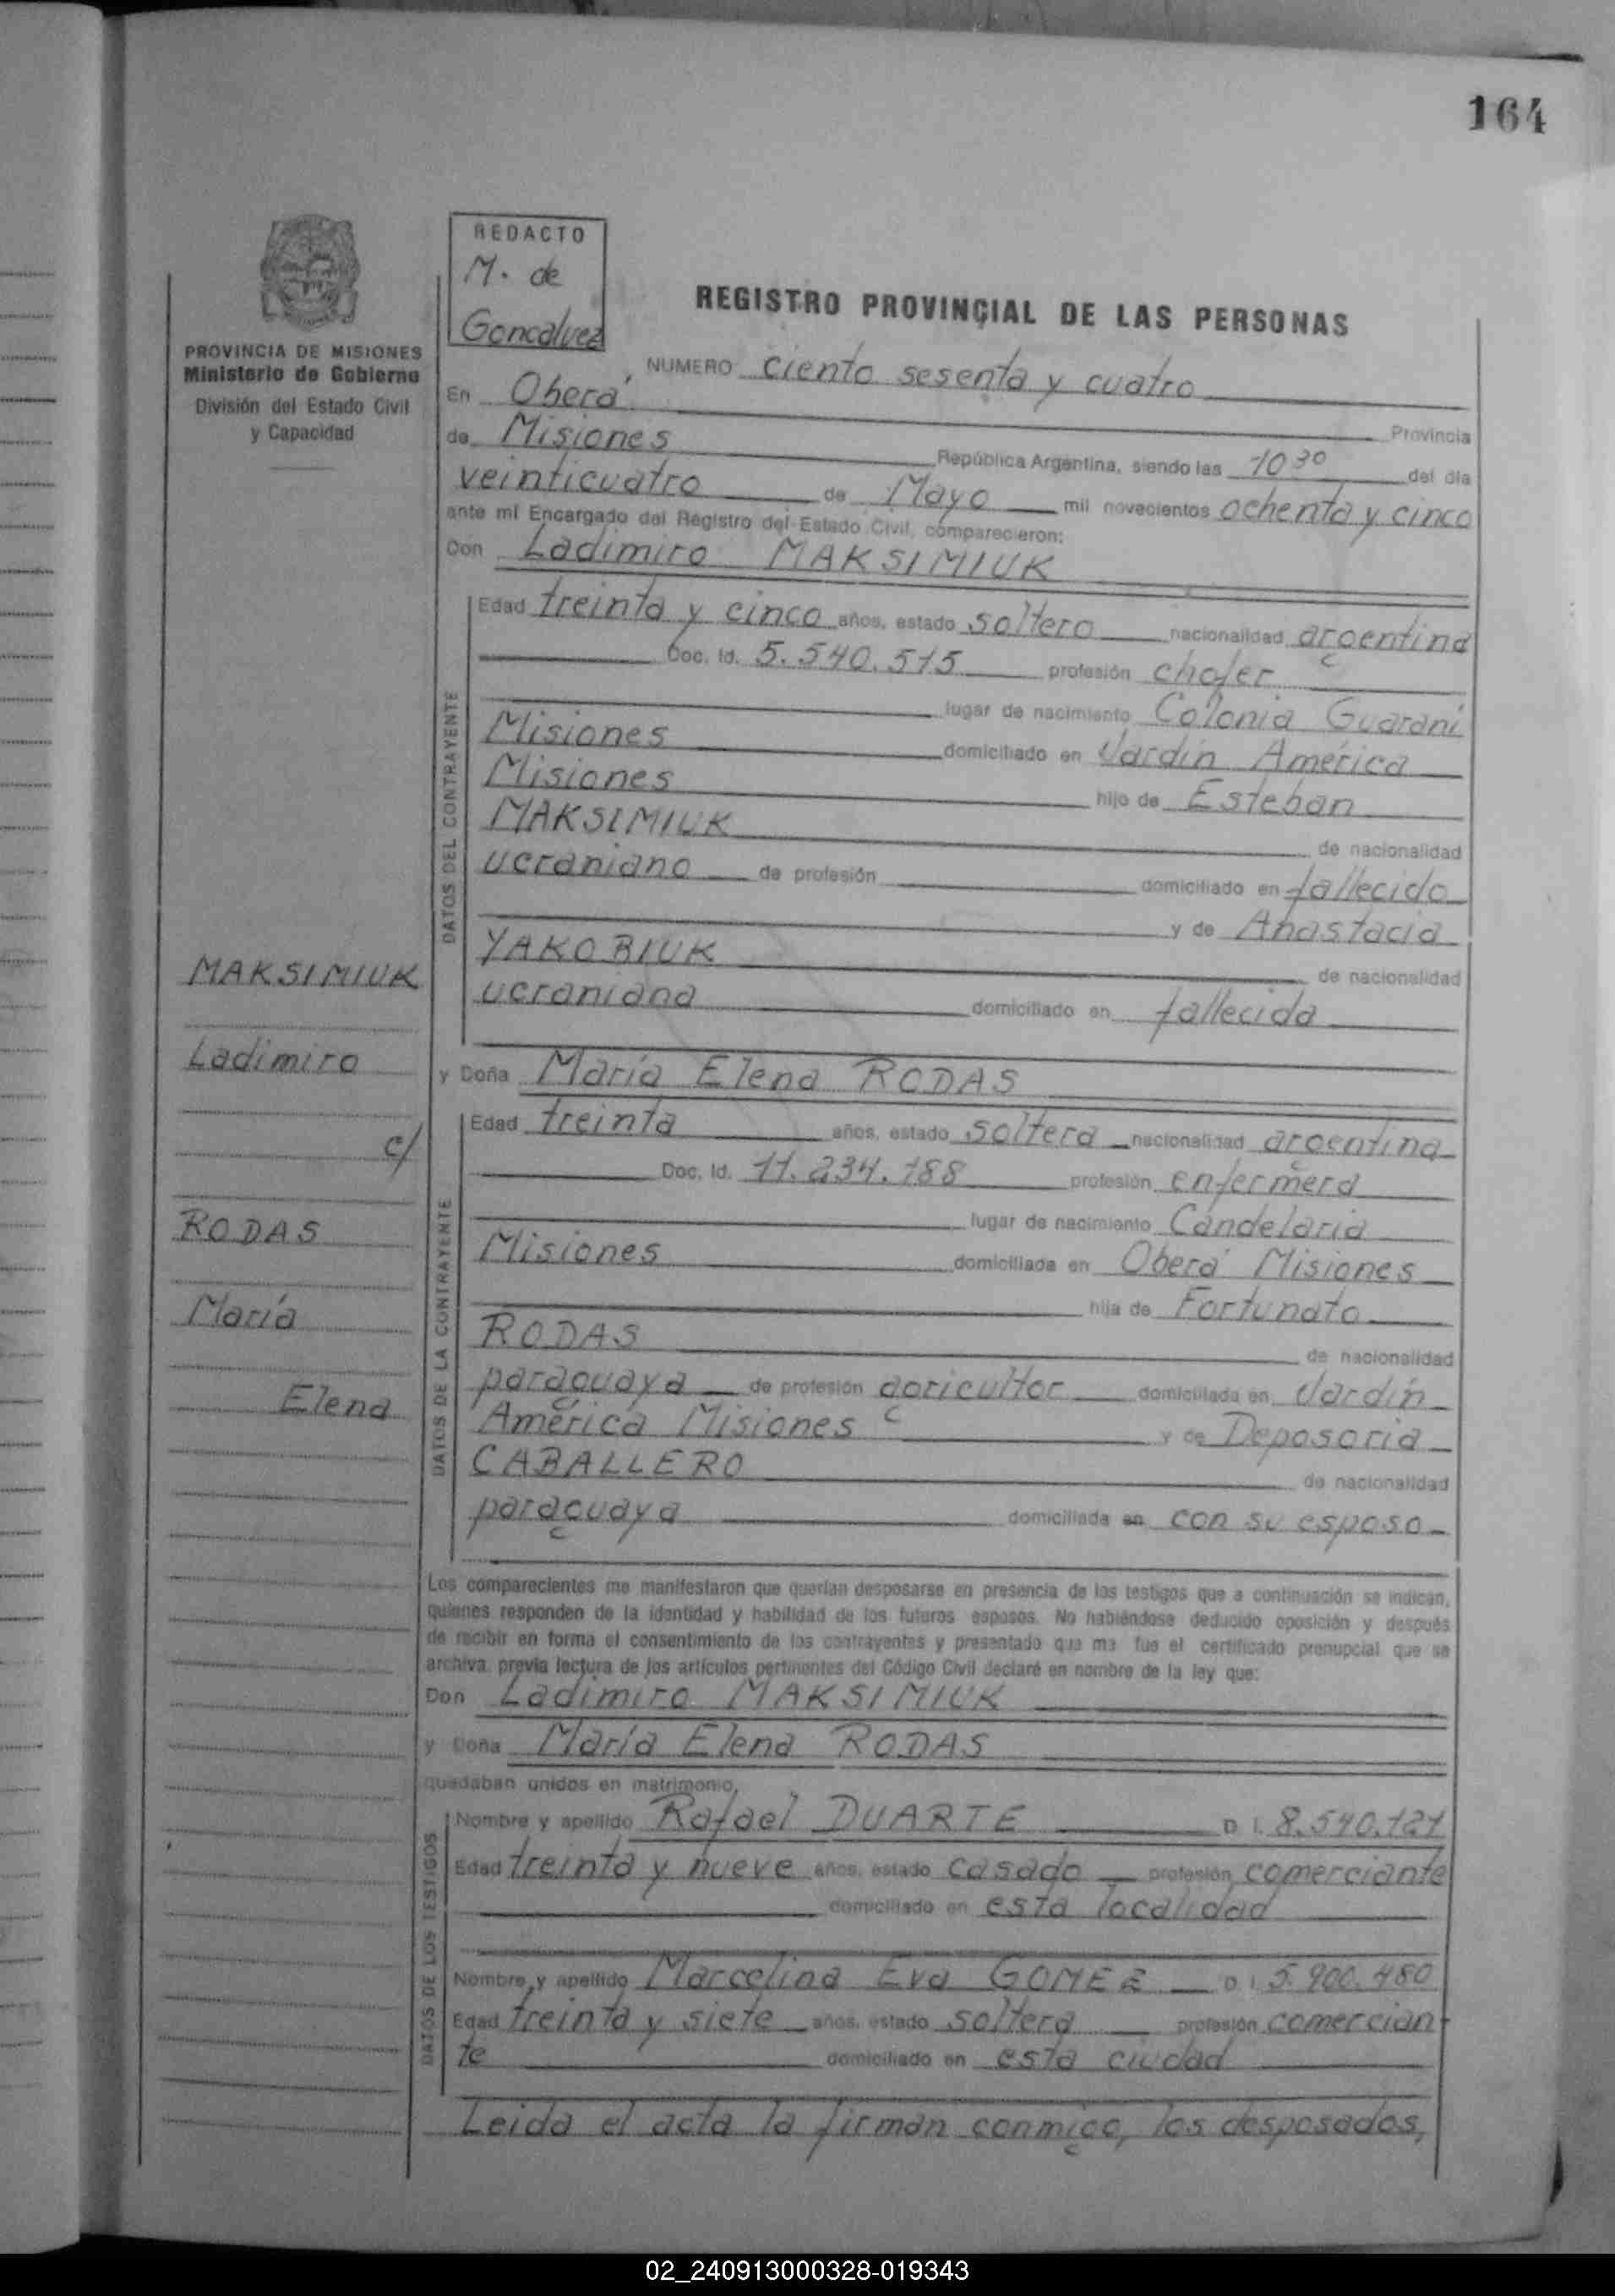 164
REDACTO
M. de
Goncalvez
PROVINCIA DE MISIONES
Ministerio de Gobierno
División del Estado Civil
y Capacidad
REGISTRO PROVINCIAL DE LAS PERSONAS
NUMERO ciento sesenta y cuatro
En Oberá Provincia
de Misiones República Argentina, siendo las 10 30 del día
veinticuatro de Mayo mil novecientos ochenta y cinco
ante mi Encargado del Registro del Estado Civil, comparecieron:
Don Ladimiro MAKSIMIUK
DATOS DEL CONTRAYENTE
Edad treinta y cinco años, estado soltero nacionalidad argentina
Doc. Id. 5.540.515 profesión chofer
lugar de nacimiento Colonia Guaraní
Misiones domiciliado en Jardín América
Misiones hijo de Esteban
MAKSIMIUK de nacionalidad
ucraniano de profesión domiciliado en fallecido
y de Anastacia
YAKOBIUK de nacionalidad
ucraniana domiciliado en fallecida
MAKSIMIUK
Ladimiro
c/
RODAS
María
Elena
y Doña María Elena RODAS
DATOS DE LA CONTRAYENTE
Edad treinta años, estado soltera nacionalidad argentina
Doc. Id. 11.234.188 profesión enfermera
lugar de nacimiento Candelaria
Misiones domiciliada en Oberá Misiones
hija de Fortunato
RODAS de nacionalidad
paraguaya de profesión agricultor domiciliada en Jardín
América Misiones y de Deposoria
CABALLERO de nacionalidad
paraguaya domiciliada en con su esposo
Los comparecientes me manifestaron que querían desposarse en presencia de los testigos que a continuación se indican,
quienes responden de la identidad y habilidad de los futuros esposos. No habiéndose deducido oposición y después
de recibir en forma el consentimiento de los contrayentes y presentado que me fue el certificado prenupcial que se
archiva, previa lectura de los artículos pertinentes del Código Civil declaré en nombre de la ley que:
Don Ladimiro MAKSIMIUK
y Doña María Elena RODAS
quedaban unidos en matrimonio.
DATOS DE LOS TESTIGOS
Nombre y apellido Rafael DUARTE D. I. 8.540.121
Edad treinta y nueve años, estado casado profesión comerciante
domiciliado en esta localidad
Nombre y apellido Marcelina Eva GOMEZ D. I. 5.900.480
Edad treinta y siete años, estado soltera profesión comercian-
te domiciliado en esta ciudad
Leida el acta la firman conmigo, los desposados,
02_240913000328-019343